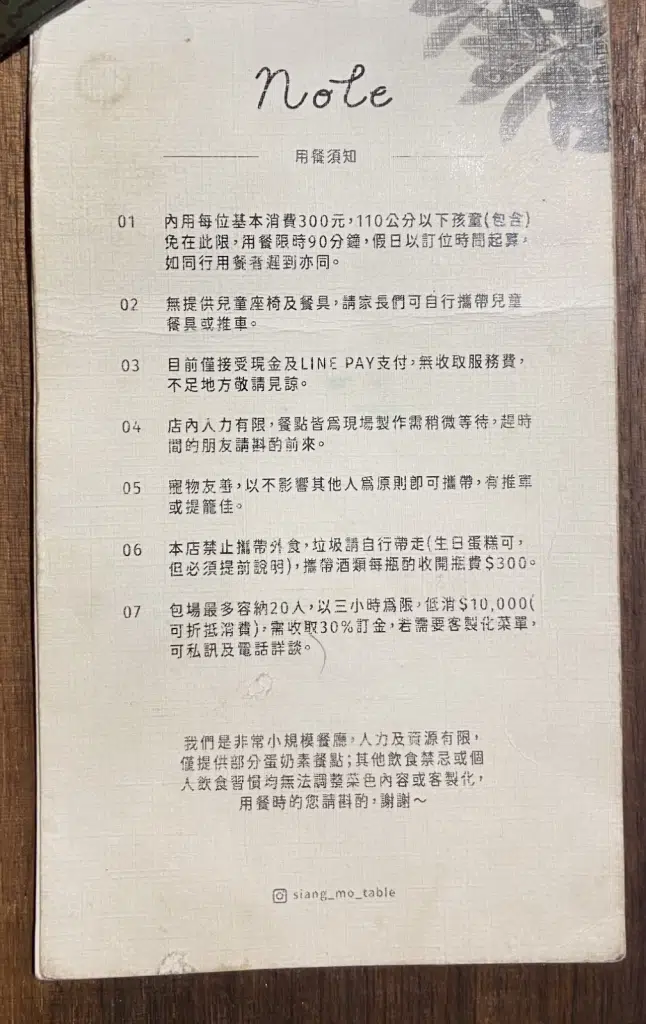 Note
用餐須知
01 內用每位基本消費300元，110公分以下孩童(包含)
免在此限，用餐限時90分鐘，假日以訂位時間起算，
如同行用餐者遲到亦同。
02 無提供兒童座椅及餐具，請家長們可自行攜帶兒童
餐具或推車。
03 目前僅接受現金及LINE PAY支付，無收取服務費，
不足地方敬請見諒。
04 店內人力有限，餐點皆為現場製作需稍微等待，趕時
間的朋友請斟酌前來。
05 寵物友善，以不影響其他人為原則即可攜帶，有推車
或提籠佳。
06 本店禁止攜帶外食，垃圾請自行帶走(生日蛋糕可，
但必須提前說明)，攜帶酒類每瓶酌收開瓶費$300。
07 包場最多容納20人，以三小時為限，低消$10,000(
可折抵消費)，需收取30%訂金，若需要客製化菜單，
可私訊及電話詳談。
我們是非常小規模餐廳，人力及資源有限，
僅提供部分蛋奶素餐點；其他飲食禁忌或個
人飲食習慣均無法調整菜色內容或客製化，
用餐時的您請斟酌，謝謝～
siang_mo_table